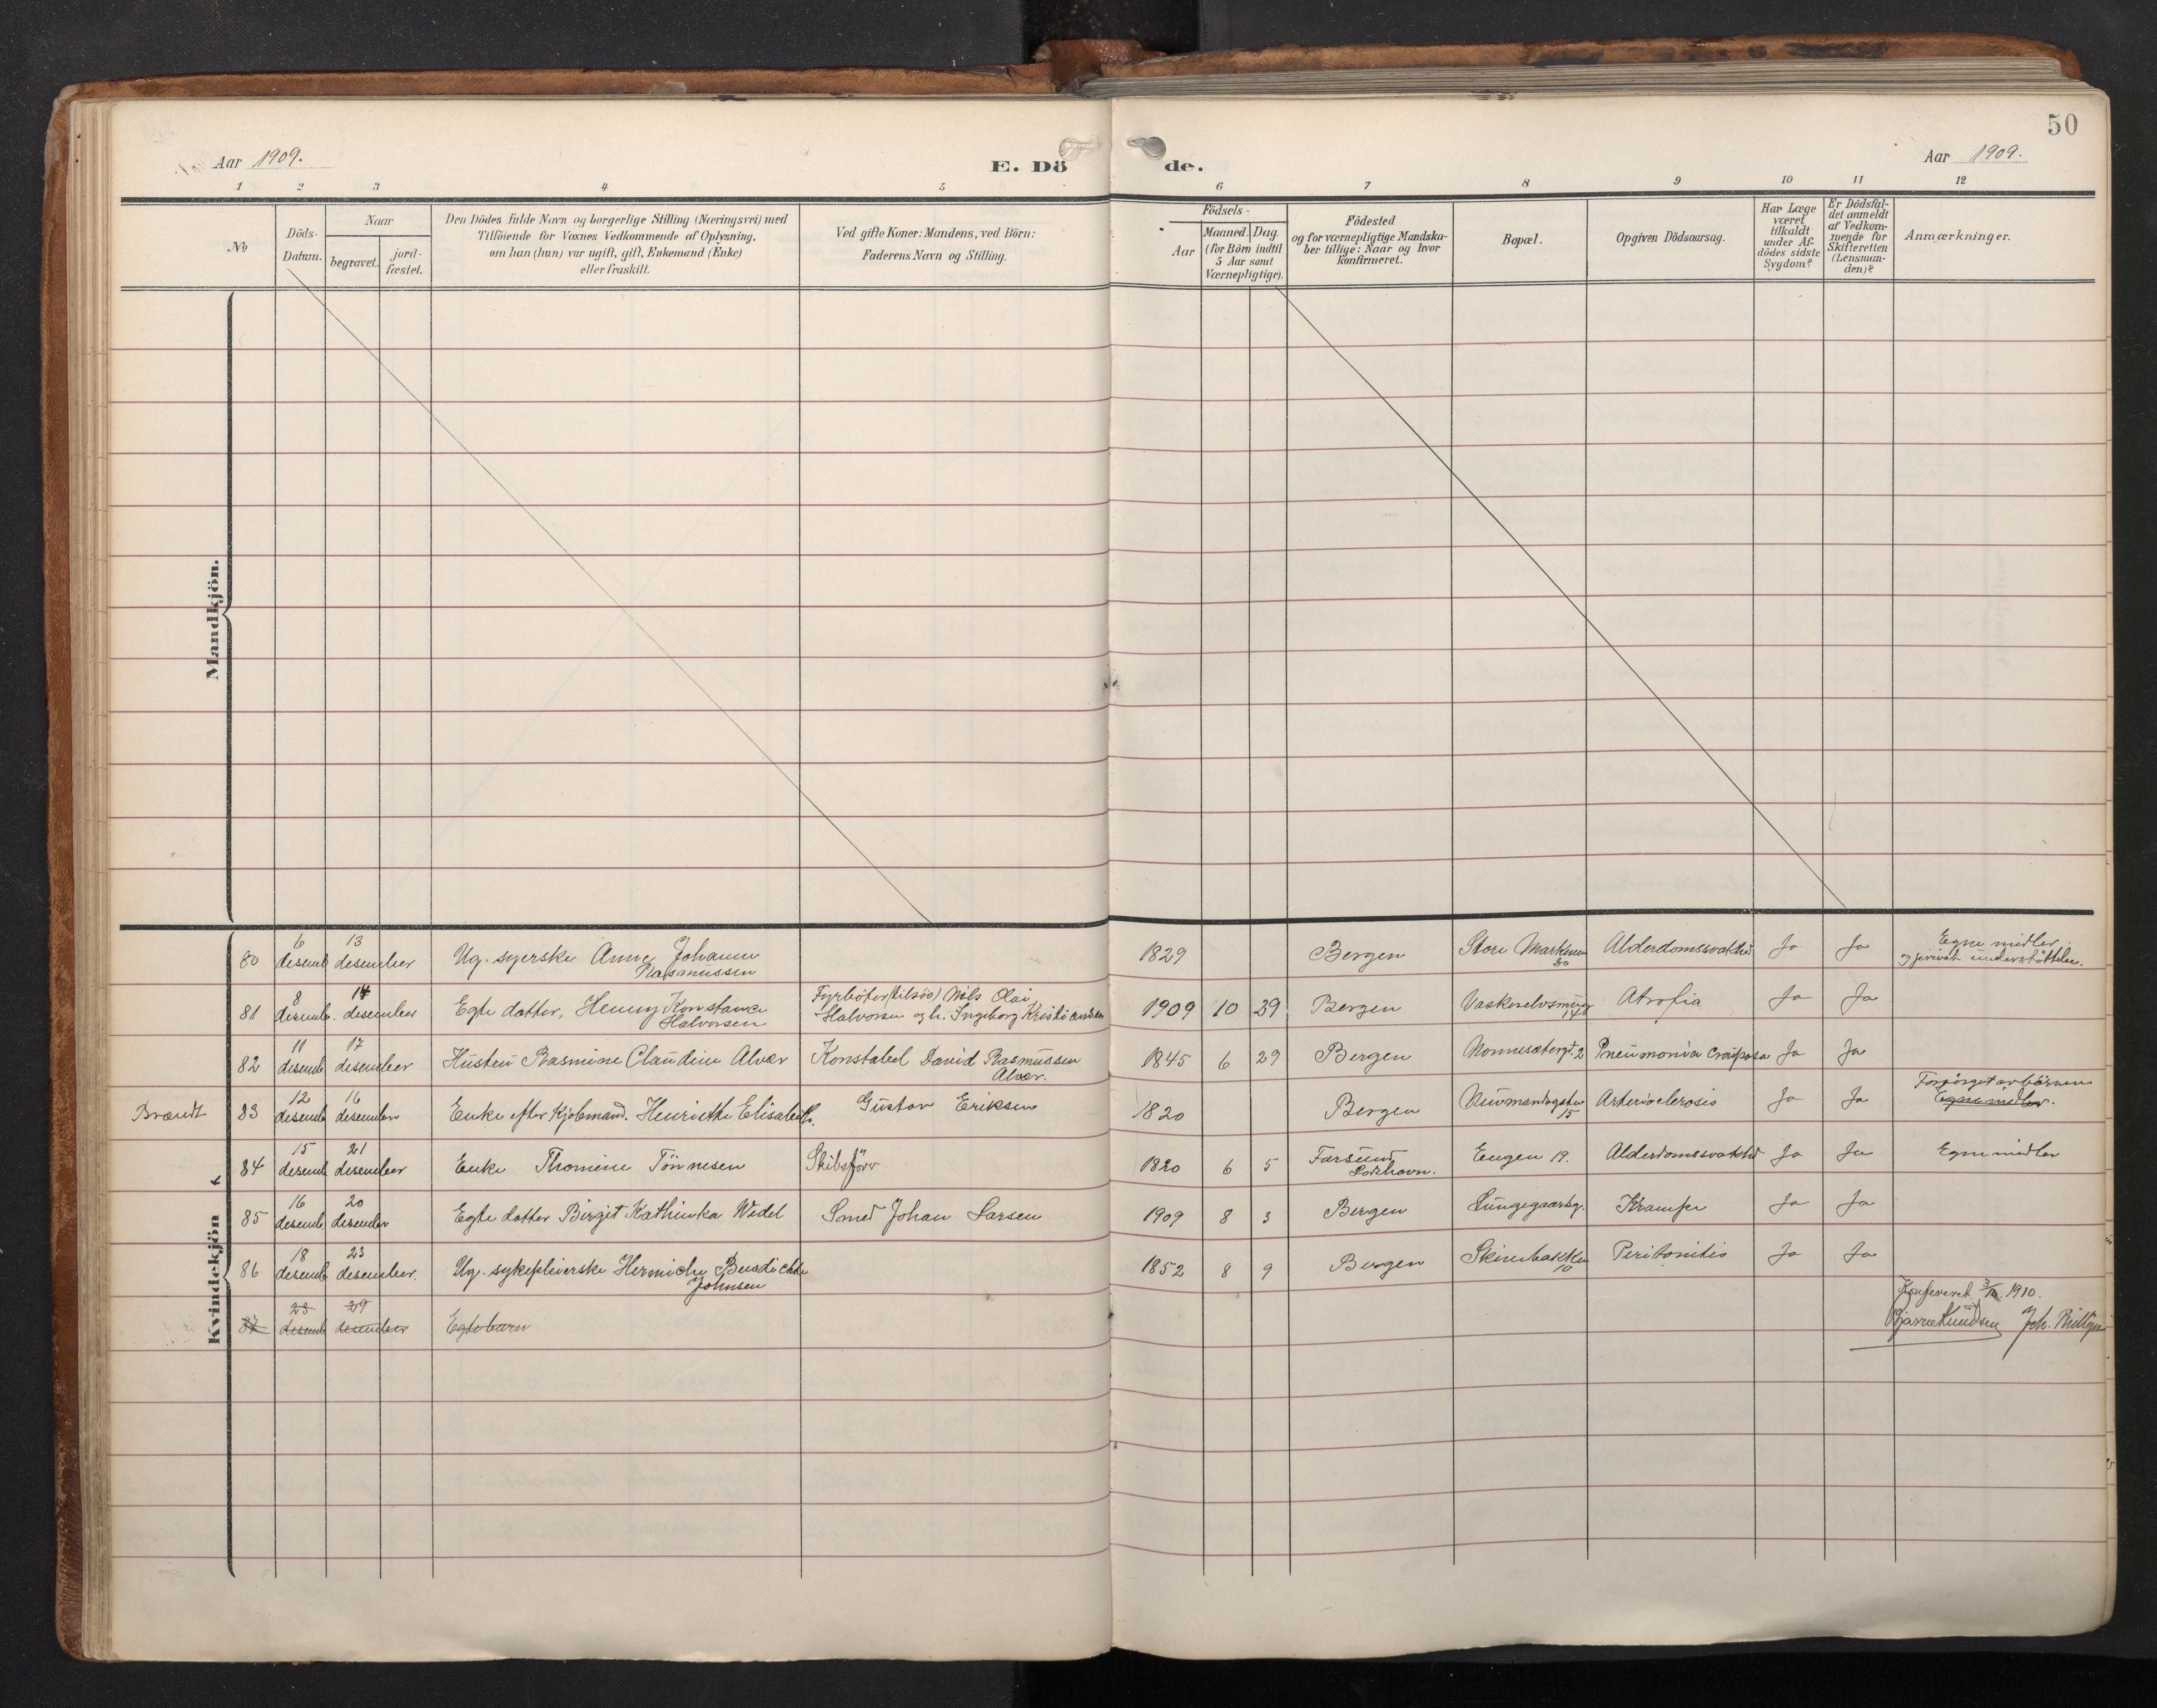 50
Aar 1909.
E. Dö de.
Aar 1909.
1 2 3 4 5 6 7 8 9 10 11 12
No
Döds-
Datum.
Naar
begravet.
jord-
fæstet.
Den Dödes fulde Navn og borgerlige Stilling (Næringsvei) med
Tilföiende for Voxnes Vedkommende af Oplysning,
om han (hun) var ugift, gift, Enkemand (Enke)
eller fraskilt.
Ved gifte Koner: Mandens, ved Börn:
Faderens Navn og Stilling.
Födsels-
Aar
Maaned. Dag.
(for Börn indtil
5 Aar samt
Værnepligtige).
Födested
og for værnepligtige Mandska-
ber tillige: Naar og hvor
konfirmeret.
Bopæl.
Opgiven Dödsaarsag.
Har Læge
været
tilkaldt
under Af-
dödes sidste
Sygdom?
Er Dödsfal-
det anmeldt
af Vedkom-
mende for
Skifteretten
(Lensman-
den)?
Anmærkninger.
Mandkjön.
Kvindekjön
80 6 desemb 13 desember Ug. syerske Anne Johanne Rasmussen 1829 Bergen Store Marken 30 Alderdomssvakhed Ja Ja Egne midler og privat understöttelse.
81 8 desemb. 14 desember Egte datter, Henny Konstance Halvorsen Fyrböter (tilsös) Nils Olai Halvorsen og h. Ingeborg Kristiansen 1909 10 29 Bergen Atrofia Ja Ja
82 11 desemb 17 desember Hustru Rasmine Claudine Alvær Konstabel David Rasmussen Alvær. 1845 6 29 Bergen Nonnesætergt. 2 Pneumonia crouposa Ja Ja
Brandt 83 12 desemb 16 desember Enke efter Kjöbmand. Henriette Elisabeth. Gustav Eriksen 1820 Bergen 15 Arteriosclerosis Ja Ja Forsörget av börnene Egne midler.
84 15 desemb 21 desember Enke Thomine Tönnesen Skibsförer 1820 6 5 Farsund Engen 19. Alderdomssvakhed Ja Ja Egne midler
85 16 desemb 20 desember Egte datter Birgit Kathinka Wedel Smed Johan Larsen 1909 8 3 Bergen Lungegaardsg. Krampe Ja Ja
86 18 desemb 23 desember. Ug. sykepleierske Hermiche Benedichte Johnsen 1852 8 9 Bergen Skivebakken 10 Peritonitis Ja Ja
87 23 desemb 29 desember Egtebarn
Konfereret 3/10 1910.
Bjarne Knudsen Joh.